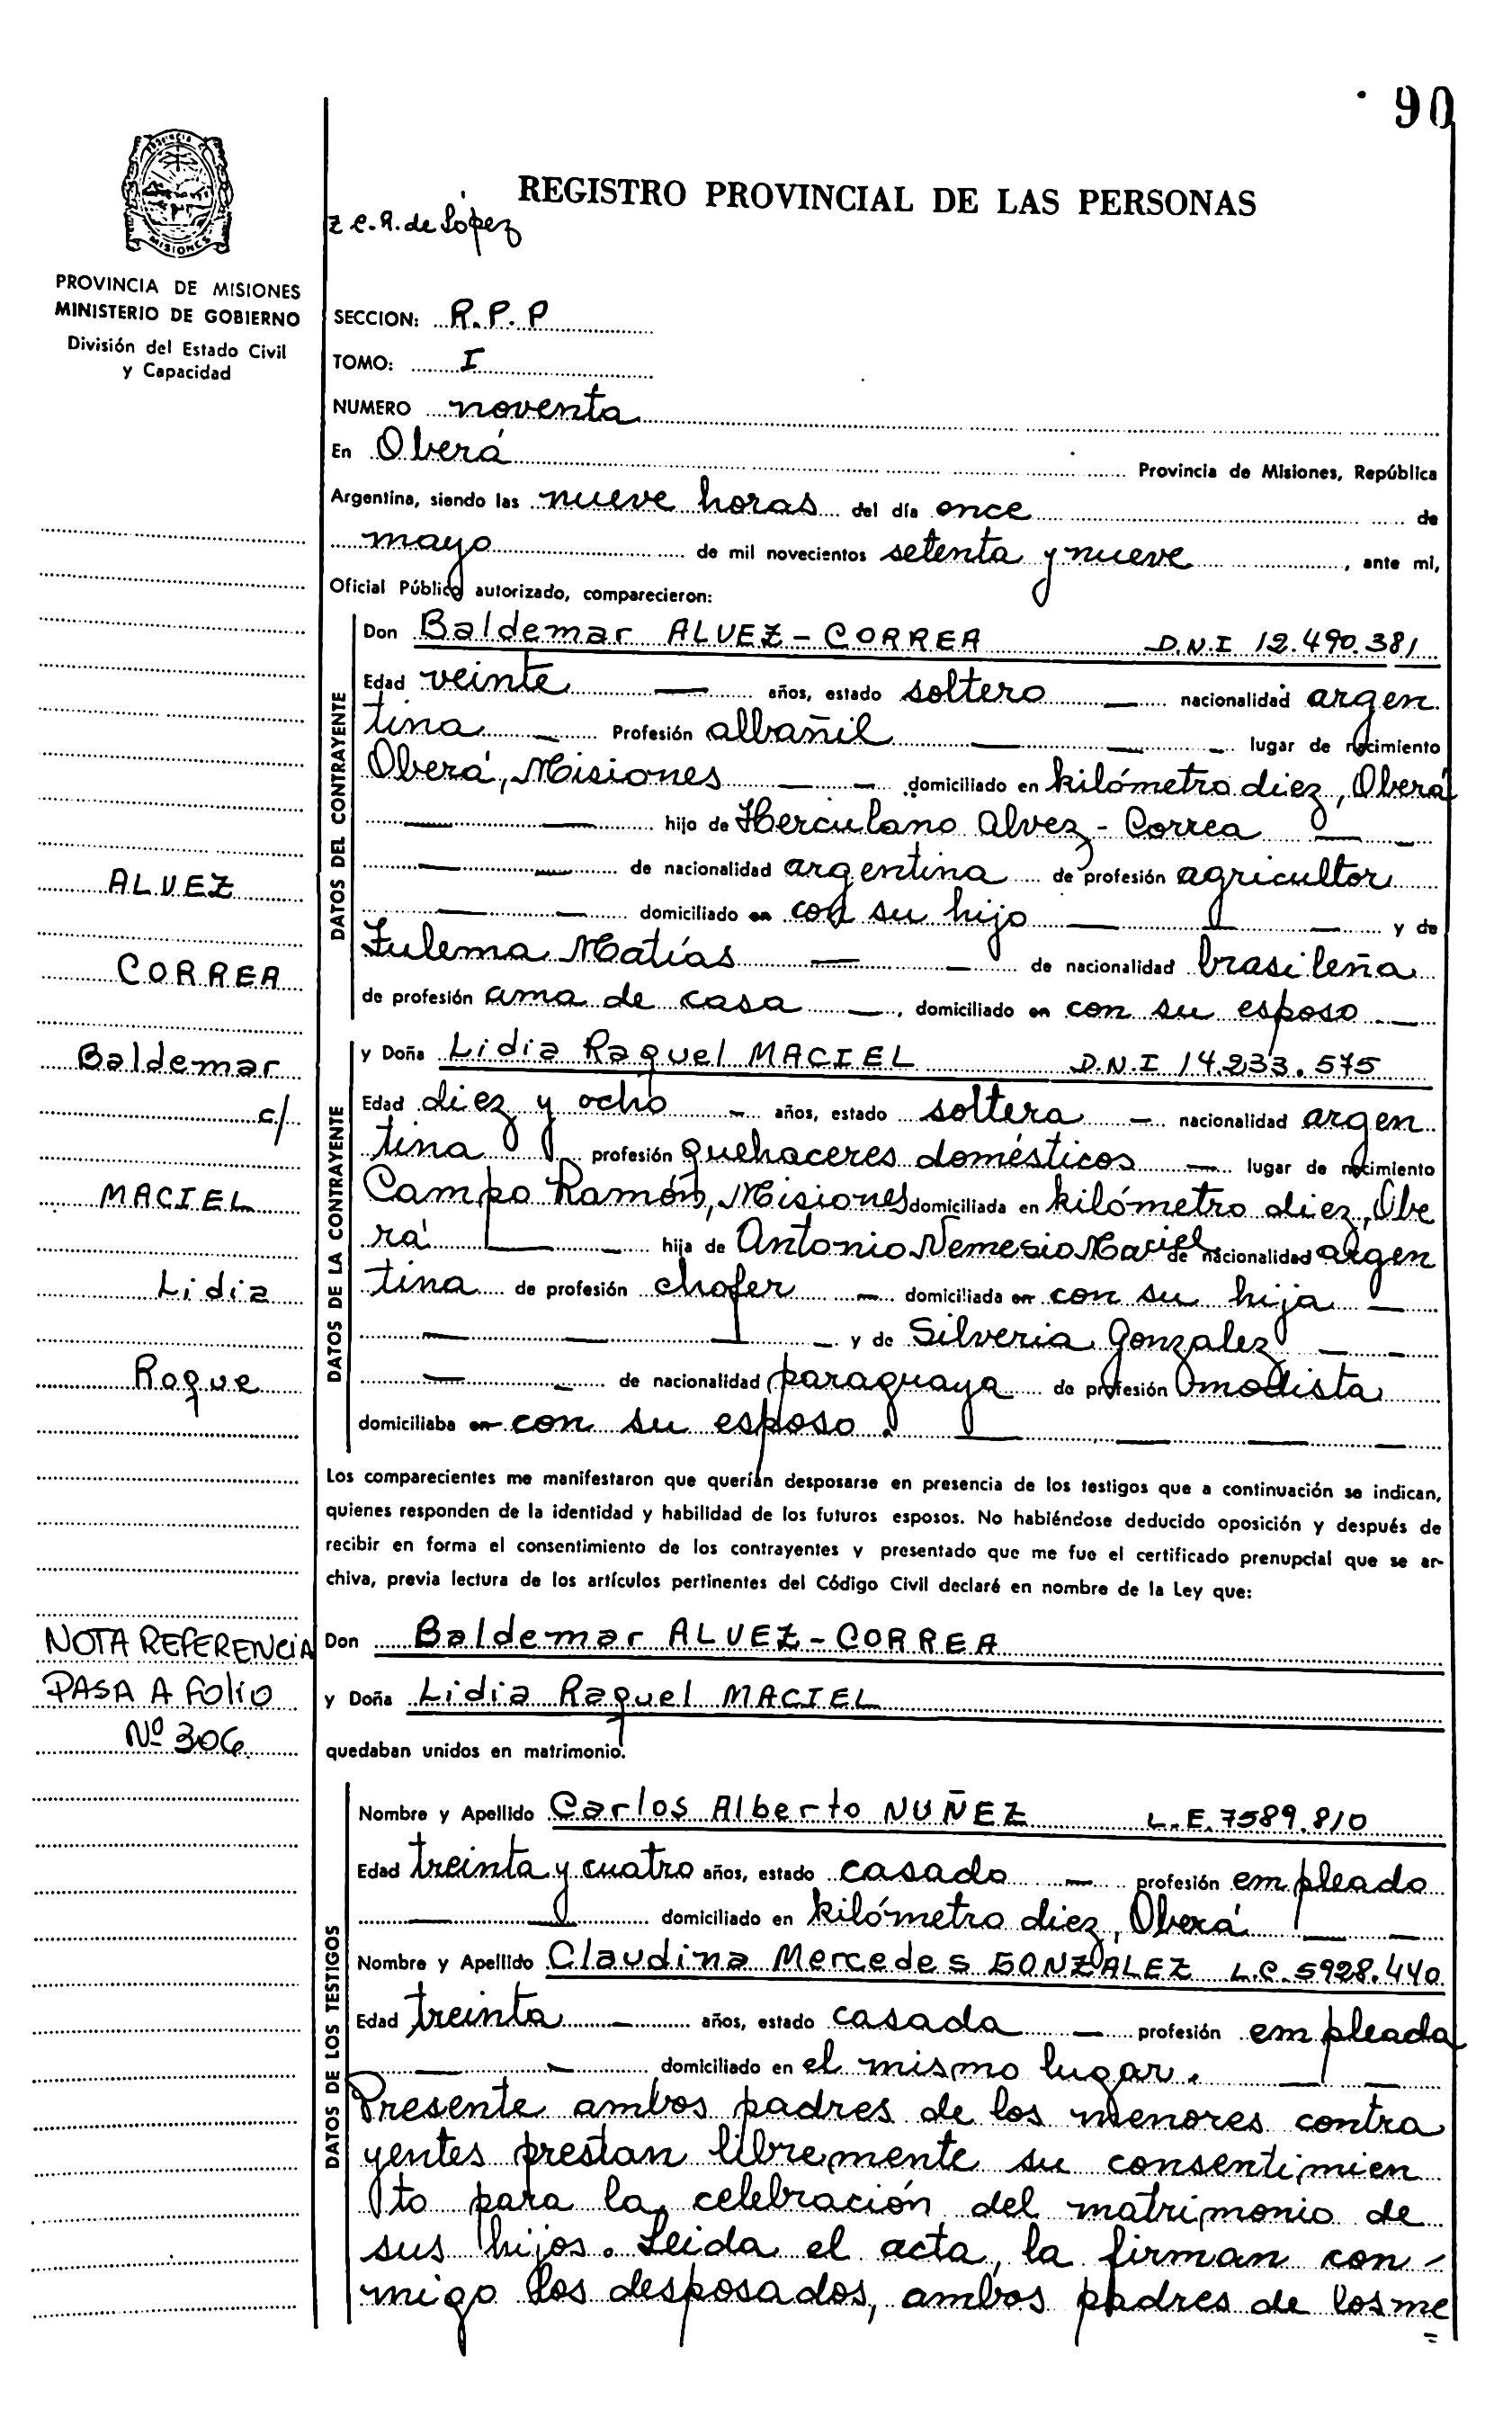 90
PROVINCIA
MISIONES
REGISTRO PROVINCIAL DE LAS PERSONAS
Z C. R. de López
PROVINCIA DE MISIONES
MINISTERIO DE GOBIERNO
División del Estado Civil
y Capacidad
SECCION: R.P.P
TOMO: I
NUMERO noventa
En Oberá Provincia de Misiones, República
Argentina, siendo las nueve horas del día once de
mayo de mil novecientos setenta y nueve, ante mi,
Oficial Público autorizado, comparecieron:
DATOS DEL CONTRAYENTE
Don Baldemar ALVEZ - CORREA D.N.I 12.490.381
Edad veinte — años, estado soltero — nacionalidad argen
tina — Profesión albañil — — lugar de nacimiento
Oberá, Misiones — — domiciliado en kilómetro diez, Oberá
— — hijo de Herculano Alvez - Correa — —
— — de nacionalidad argentina de profesión agricultor
— — domiciliado en con su hijo — — — y de
Zulema Matías — — de nacionalidad brasileña
de profesión ama de casa —, domiciliado en con su esposo. —
DATOS DE LA CONTRAYENTE
y Doña Lidia Raquel MACIEL D.N.I 14.233.575
Edad diez y ocho — años, estado soltera — nacionalidad argen
tina profesión quehaceres domésticos — lugar de nacimiento
Campo Ramón, Misiones domiciliada en kilómetro diez, Obe
rá — — hija de Antonio Nemesio Maciel de nacionalidad argen
tina de profesión chofer — domiciliada en con su hija —
— — — y de Silveria Gonzalez — —
— — de nacionalidad paraguaya de profesión modista
domiciliaba en con su esposo. — — — —
ALVEZ
CORREA
Baldemar
c/
MACIEL
Lidia
Roque
NOTA REFERENCIA
PASA A FOLIO
Nº 306
Los comparecientes me manifestaron que querían desposarse en presencia de los testigos que a continuación se indican,
quienes responden de la identidad y habilidad de los futuros esposos. No habiéndose deducido oposición y después de
recibir en forma el consentimiento de los contrayentes y presentado que me fue el certificado prenupcial que se ar-
chiva, previa lectura de los artículos pertinentes del Código Civil declaré en nombre de la Ley que:
Don Baldemar ALVEZ - CORREA
y Doña Lidia Raquel MACIEL
quedaban unidos en matrimonio.
DATOS DE LOS TESTIGOS
Nombre y Apellido Carlos Alberto NUÑEZ L.E. 7589.810
Edad treinta y cuatro años, estado casado — profesión empleado
— — domiciliado en kilómetro diez, Oberá — —
Nombre y Apellido Claudina Mercedes GONZALEZ L.C. 5928.440
Edad treinta — años, estado casada — profesión empleada
— — domiciliado en el mismo lugar. — —
Presente ambos padres de los menores contra
yentes prestan libremente su consentimien
to para la celebración del matrimonio de
sus hijos. Leida el acta, la firman con-
migo los desposados, ambos padres de los me
=